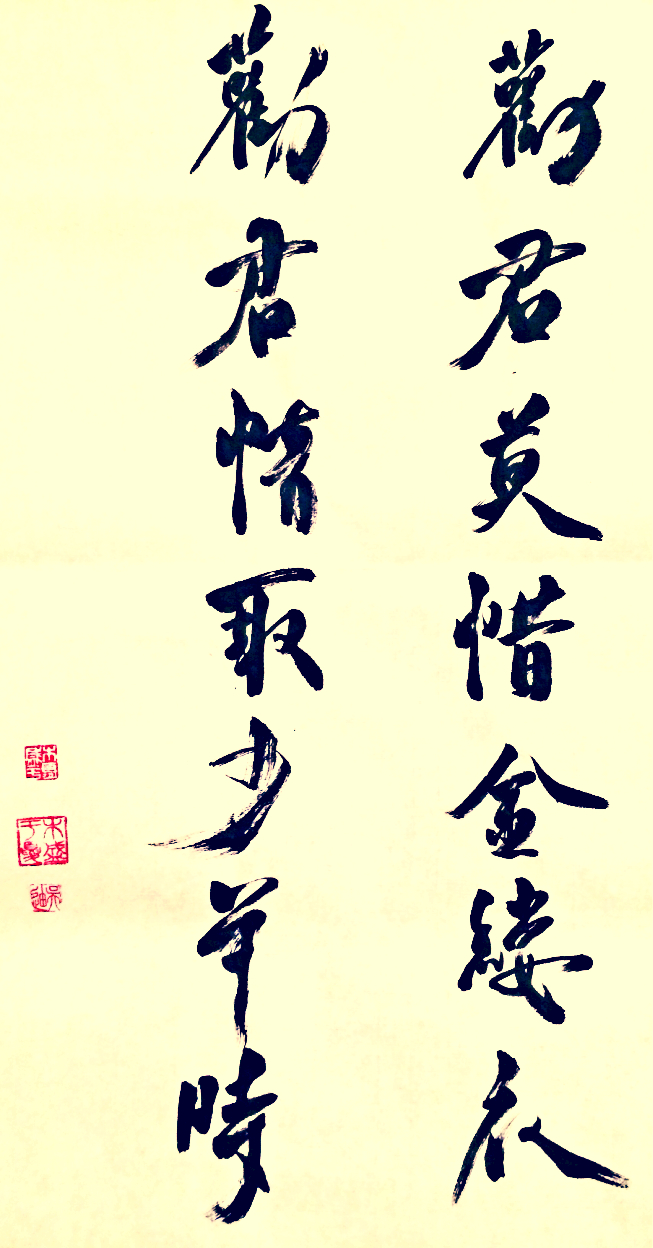 勸君莫惜金縷衣
勸君惜取少年時